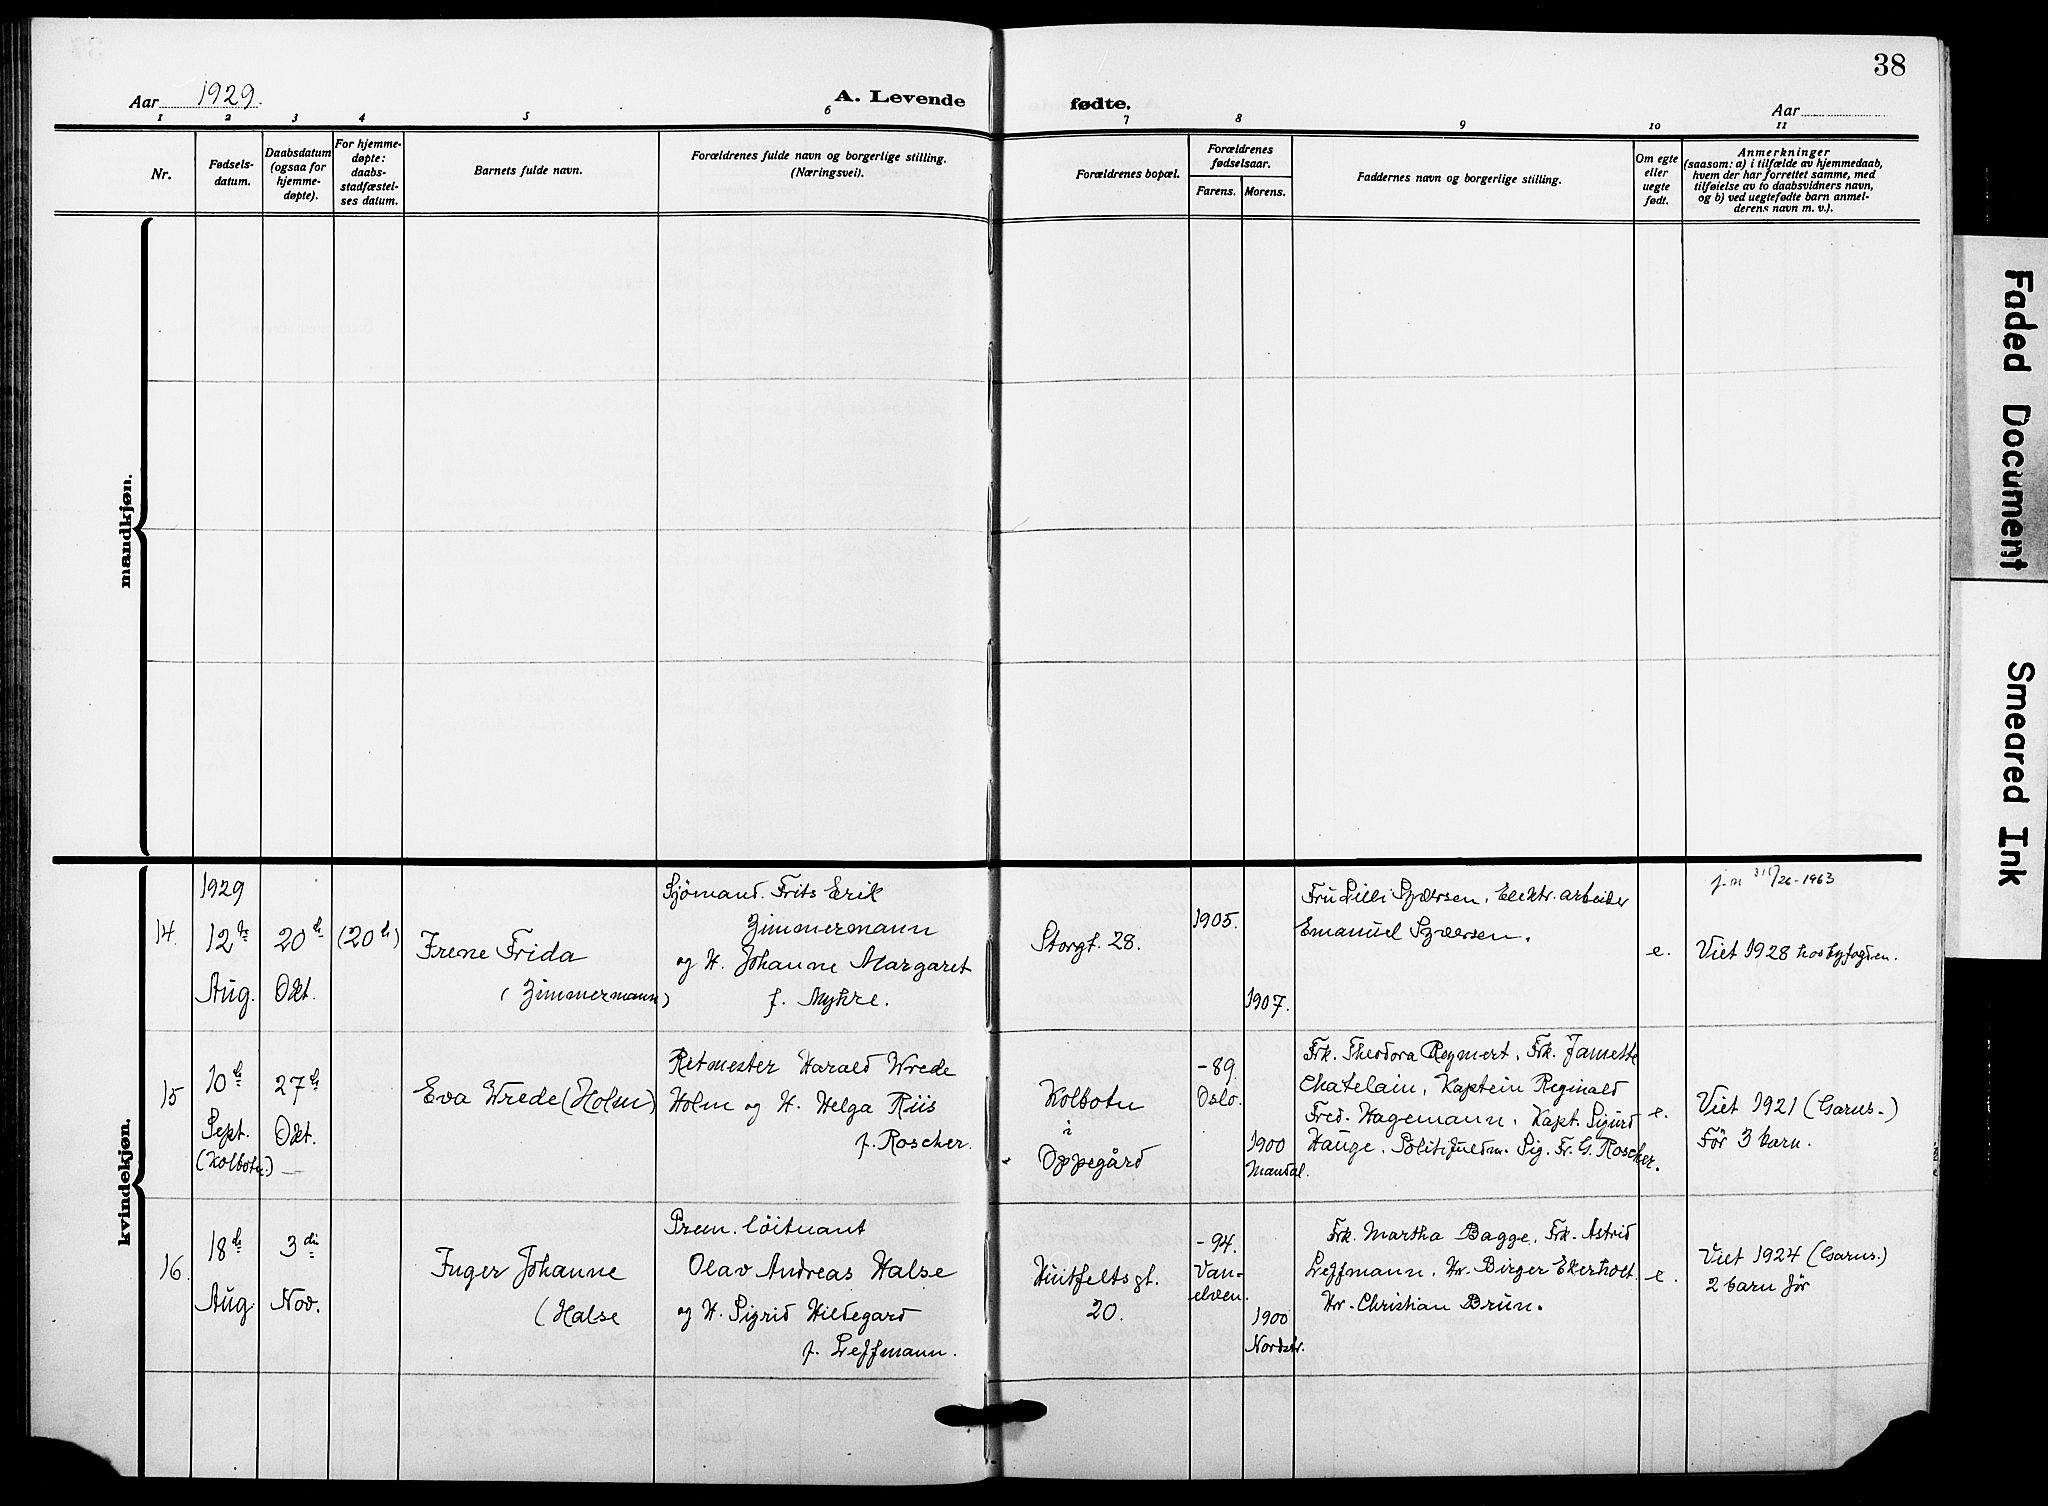 38
Aar 1929.
A. Levende
fødte.
Aar
1 2 3 4 5 6 7 8 9 10 11
Nr.
Fødsels-
datum.
Daabsdatum
(ogsaa for
hjemme-
døpte).
For hjemme-
døpte:
daabs-
stadfæstel-
ses datum.
Barnets fulde navn.
Forældrenes fulde navn og borgerlige stilling.
(Næringsvei).
Forældrenes bopæl.
Forældrenes
fødselsaar.
Farens. Morens.
Faddernes navn og borgerlige stilling.
Om egte
eller
uegte
født.
Anmerkninger
(saasom: a) i tilfælde av hjemmedaab,
hvem der har forrettet samme, med
tilføielse av to daabsvidners navn,
og b) ved uegtefødte barn anmel-
derens navn m. v.).
mandkjøn.
kvindekjøn.
14.
1929
12te
Aug.
20de
Okt.
(20de)
Irene Frida
(Zimmermann)
Sjömand. Frits Erik
Zimmermann
og H. Johanne Margaret
f. Myhre.
Storgt. 28.
1905.
1907.
Fru Lilli Syversen, Elektr. arbeider
Emanuel Syversen.
e.
26-1963
Viet 1928 hos byfogden.
15
10de
Sept.
(Kolbotn.)
27de
Okt.
Eva Wrede (Holm)
Ritmester Harald Wrede
Holm og H. Helga Riis
f. Roscher.
Kolbotn
i
Oppegård
-89.
Oslo.
1900
Mandal.
Frk. Theodora Reymert, Frk. Janette
Chatelain, Kaptein Reginald
Fred. Hagemann, Kapt. Sigurd
Hauge, Politifuldm. Sig. Fr. G. Roscher.
e.
Viet 1921 (Garns.)
Før 3 barn.
16.
18de
Aug.
3die
Nov.
Inger Johanne
(Halse
Prem. löitnant
Olav Andreas Halse
og H. Sigrid Hildegard
f. Leffmann.
Huitfeltsgt.
20.
-94.
Van-
elven.
1900
Nordstr.
Frk. Martha Bagge, Frk. Astrid
Leffmann, Hr. Birger Ekerholt
Hr. Christian Brun.
e.
Viet 1924 (Garns.)
2 barn før
Faded Document
Smeared Ink